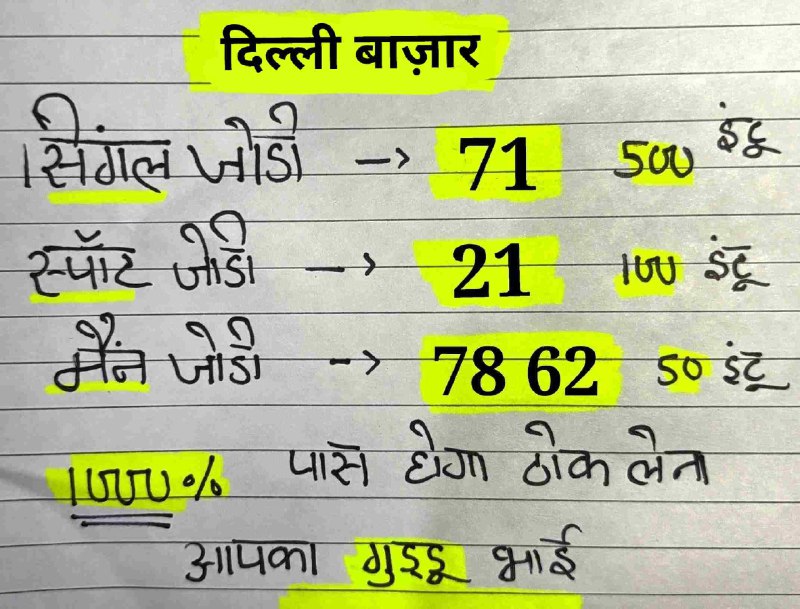 दिल्ली बाज़ार
सिंगल जोडी → 71 500 इंटू
स्पॉट जोडी → 21 100 इंटू
मैंन जोडी → 78 62 50 इंटू
1000% पास होगा ठोक लेना
आपका गुड्डू भाई